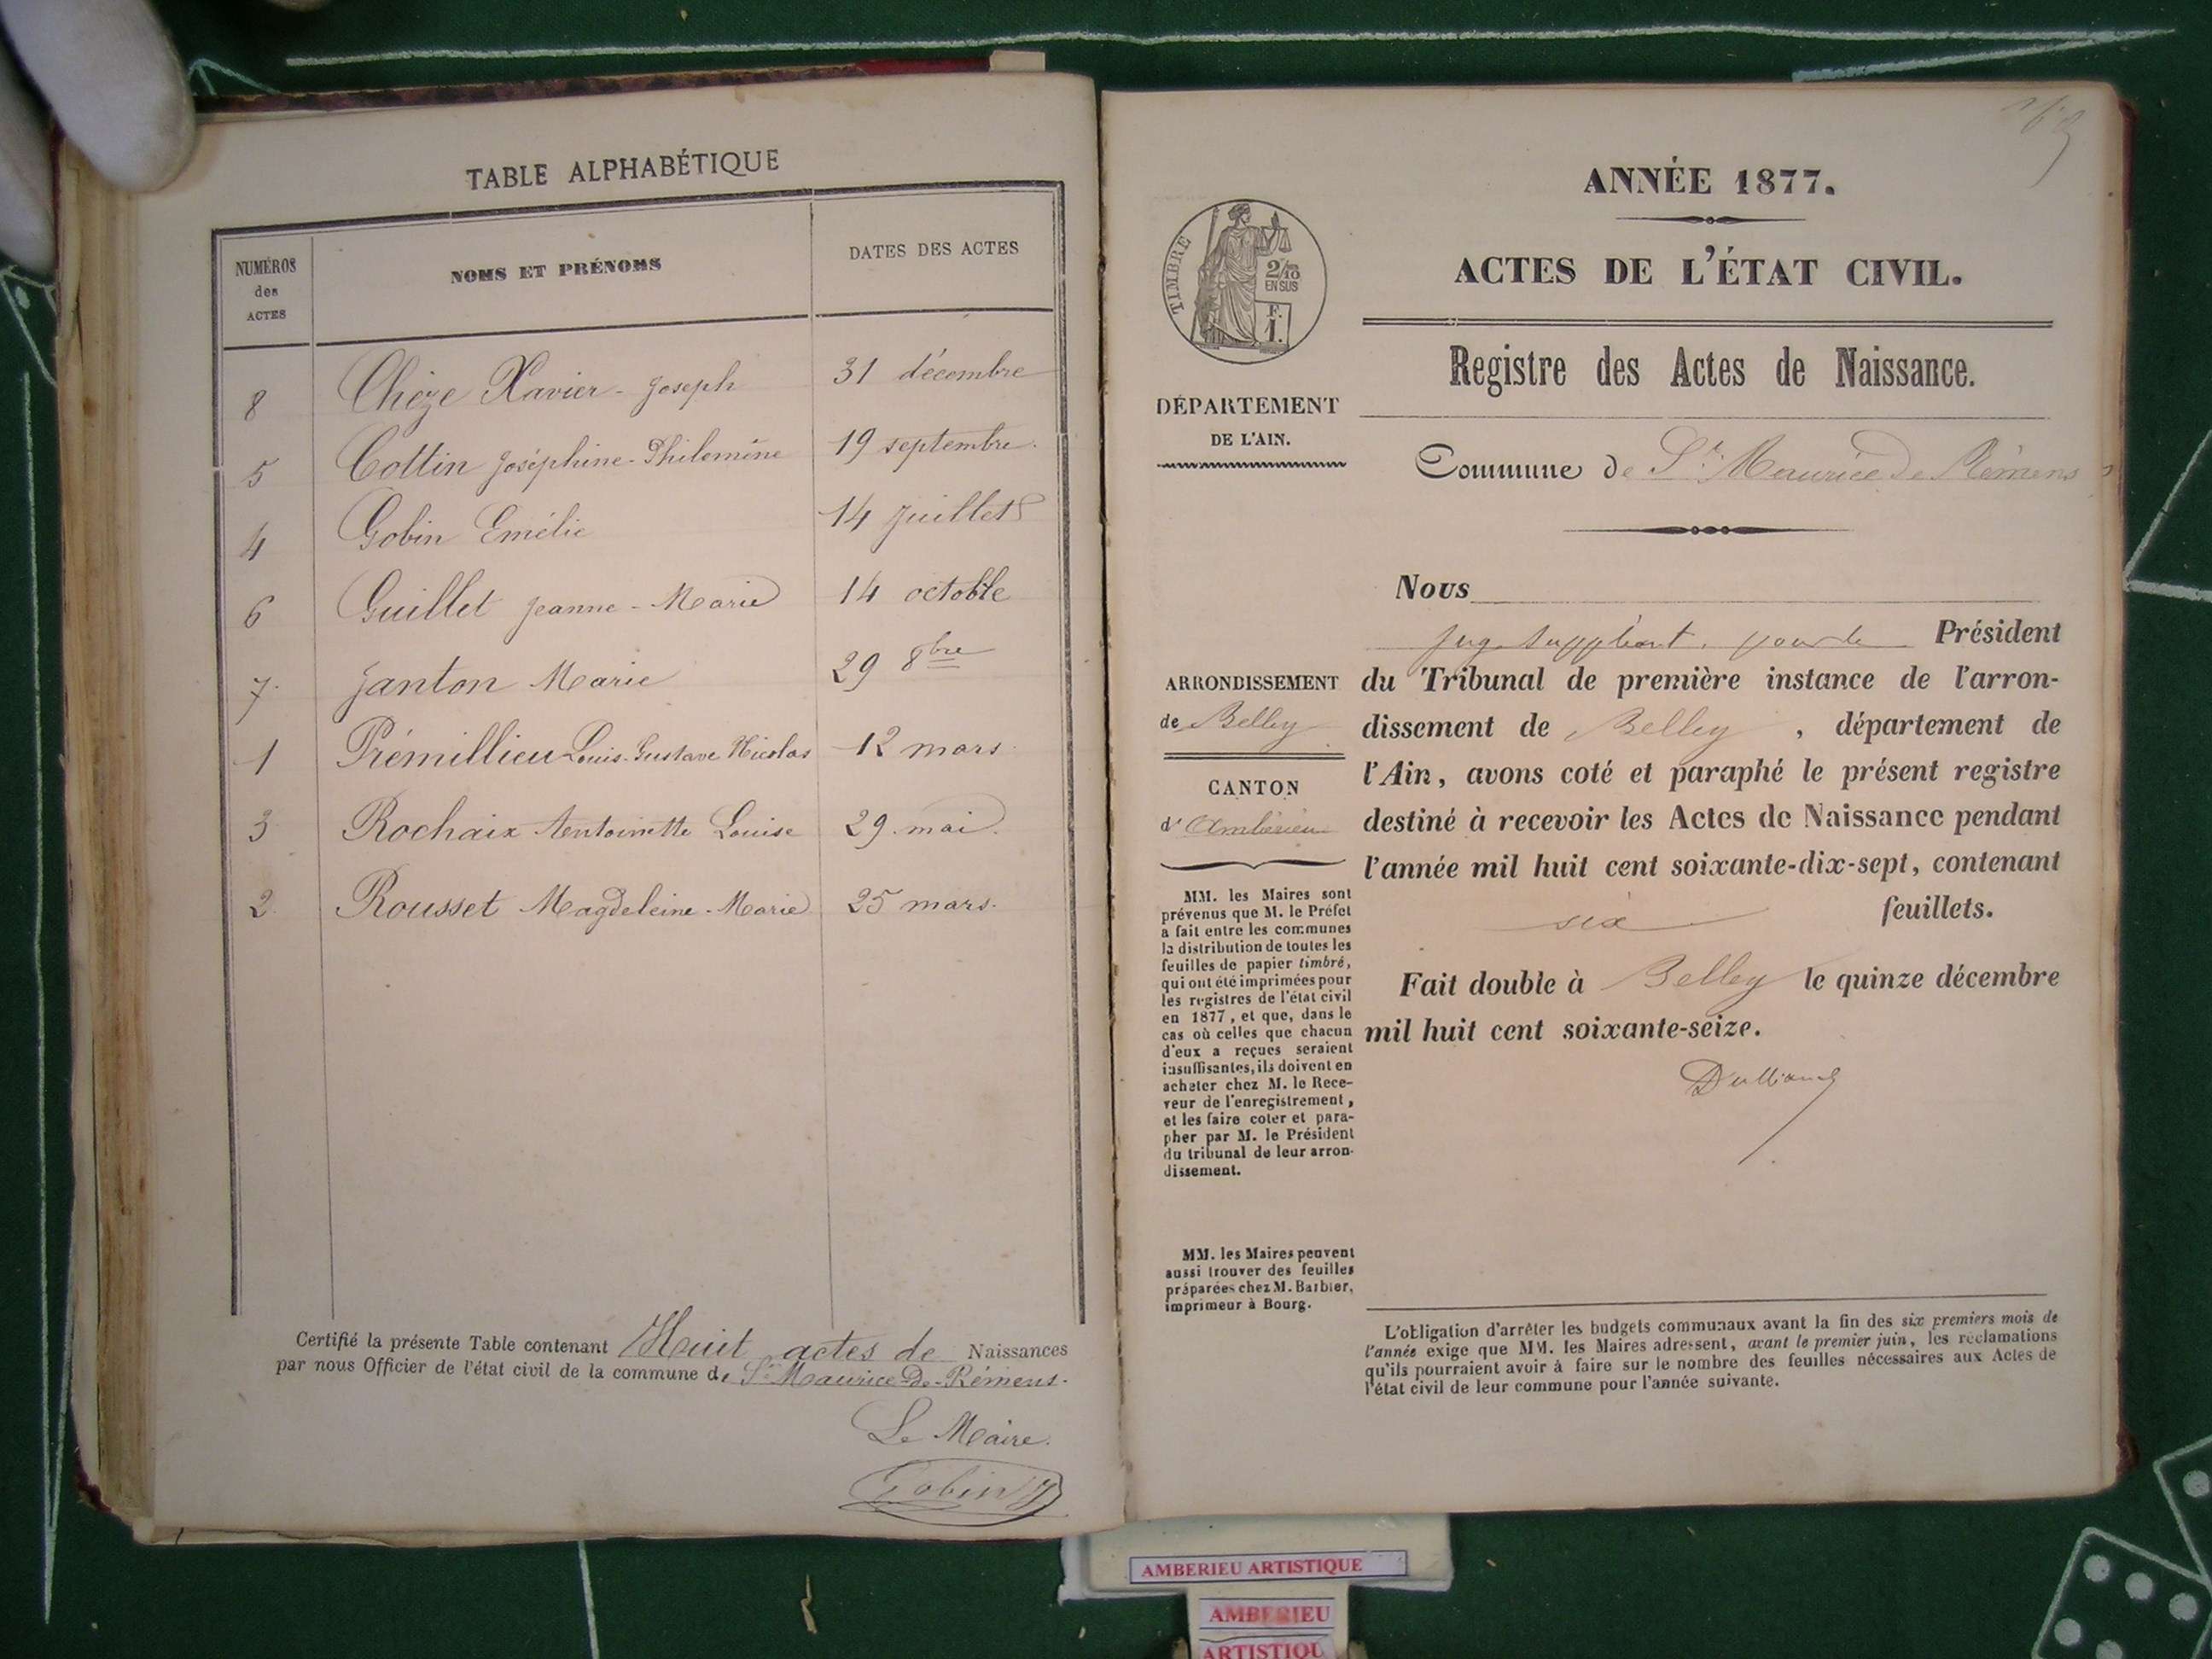 TABLE ALPHABÉTIQUE
NUMÉROS
des
ACTES
NOMS ET PRÉNOMS
DATES DES ACTES
8 Chèze Xavier-Joseph 31 décembre
5 Cottin Joséphine-Philomène 19 septembre.
4 Gobin Emélie 14 juillet
6 Guillet Jeanne-Marie 14 octobre
7 Janton Marie 29 8bre
1 Prémillieu Louis-Gustave Nicolas 12 mars
3 Rochaix Antoinette Louise 29 mai.
2 Rousset Magdeleine-Marie 25 mars.
Certifié la présente Table contenant Huit actes de Naissances
par nous Officier de l'état civil de la commune de St Maurice-De-Rémens.
Le Maire.
Gobin
ANNÉE 1877.
ACTES DE L'ÉTAT CIVIL.
TIMBRE
2/10
EN SUS
F.
1.
Registre des Actes de Naissance.
DÉPARTEMENT
DE L'AIN.
Commune de St Maurice de Rémens
Nous
juge suppléant, pour le Président
du Tribunal de première instance de l'arron-
dissement de Belley, département de
l'Ain, avons coté et paraphé le présent registre
destiné à recevoir les Actes de Naissance pendant
l'année mil huit cent soixante-dix-sept, contenant
six feuillets.
Fait double à Belley le quinze décembre
mil huit cent soixante-seize.
ARRONDISSEMENT
de Belley
CANTON
d'Ambérieu
MM. les Maires sont
prévenus que M. le Préfet
a fait entre les communes
la distribution de toutes les
feuilles de papier timbré,
qui ont été imprimées pour
les registres de l'état civil
en 1877, et que, dans le
cas où celles que chacun
d'eux a reçues seraient
insuffisantes, ils doivent en
acheter chez M. le Rece-
veur de l'enregistrement,
et les faire coter et para-
pher par M. le Président
du tribunal de leur arron-
dissement.
MM. les Maires peuvent
aussi trouver des feuilles
préparées chez M. Barbier,
imprimeur à Bourg.
L'obligation d'arrêter les budgets communaux avant la fin des six premiers mois de
l'année exige que MM. les Maires adressent, avant le premier juin, les réclamations
qu'ils pourraient avoir à faire sur le nombre des feuilles nécessaires aux Actes de
l'état civil de leur commune pour l'année suivante.
AMBERIEU ARTISTIQUE
AMBERIEU
ARTISTIQU